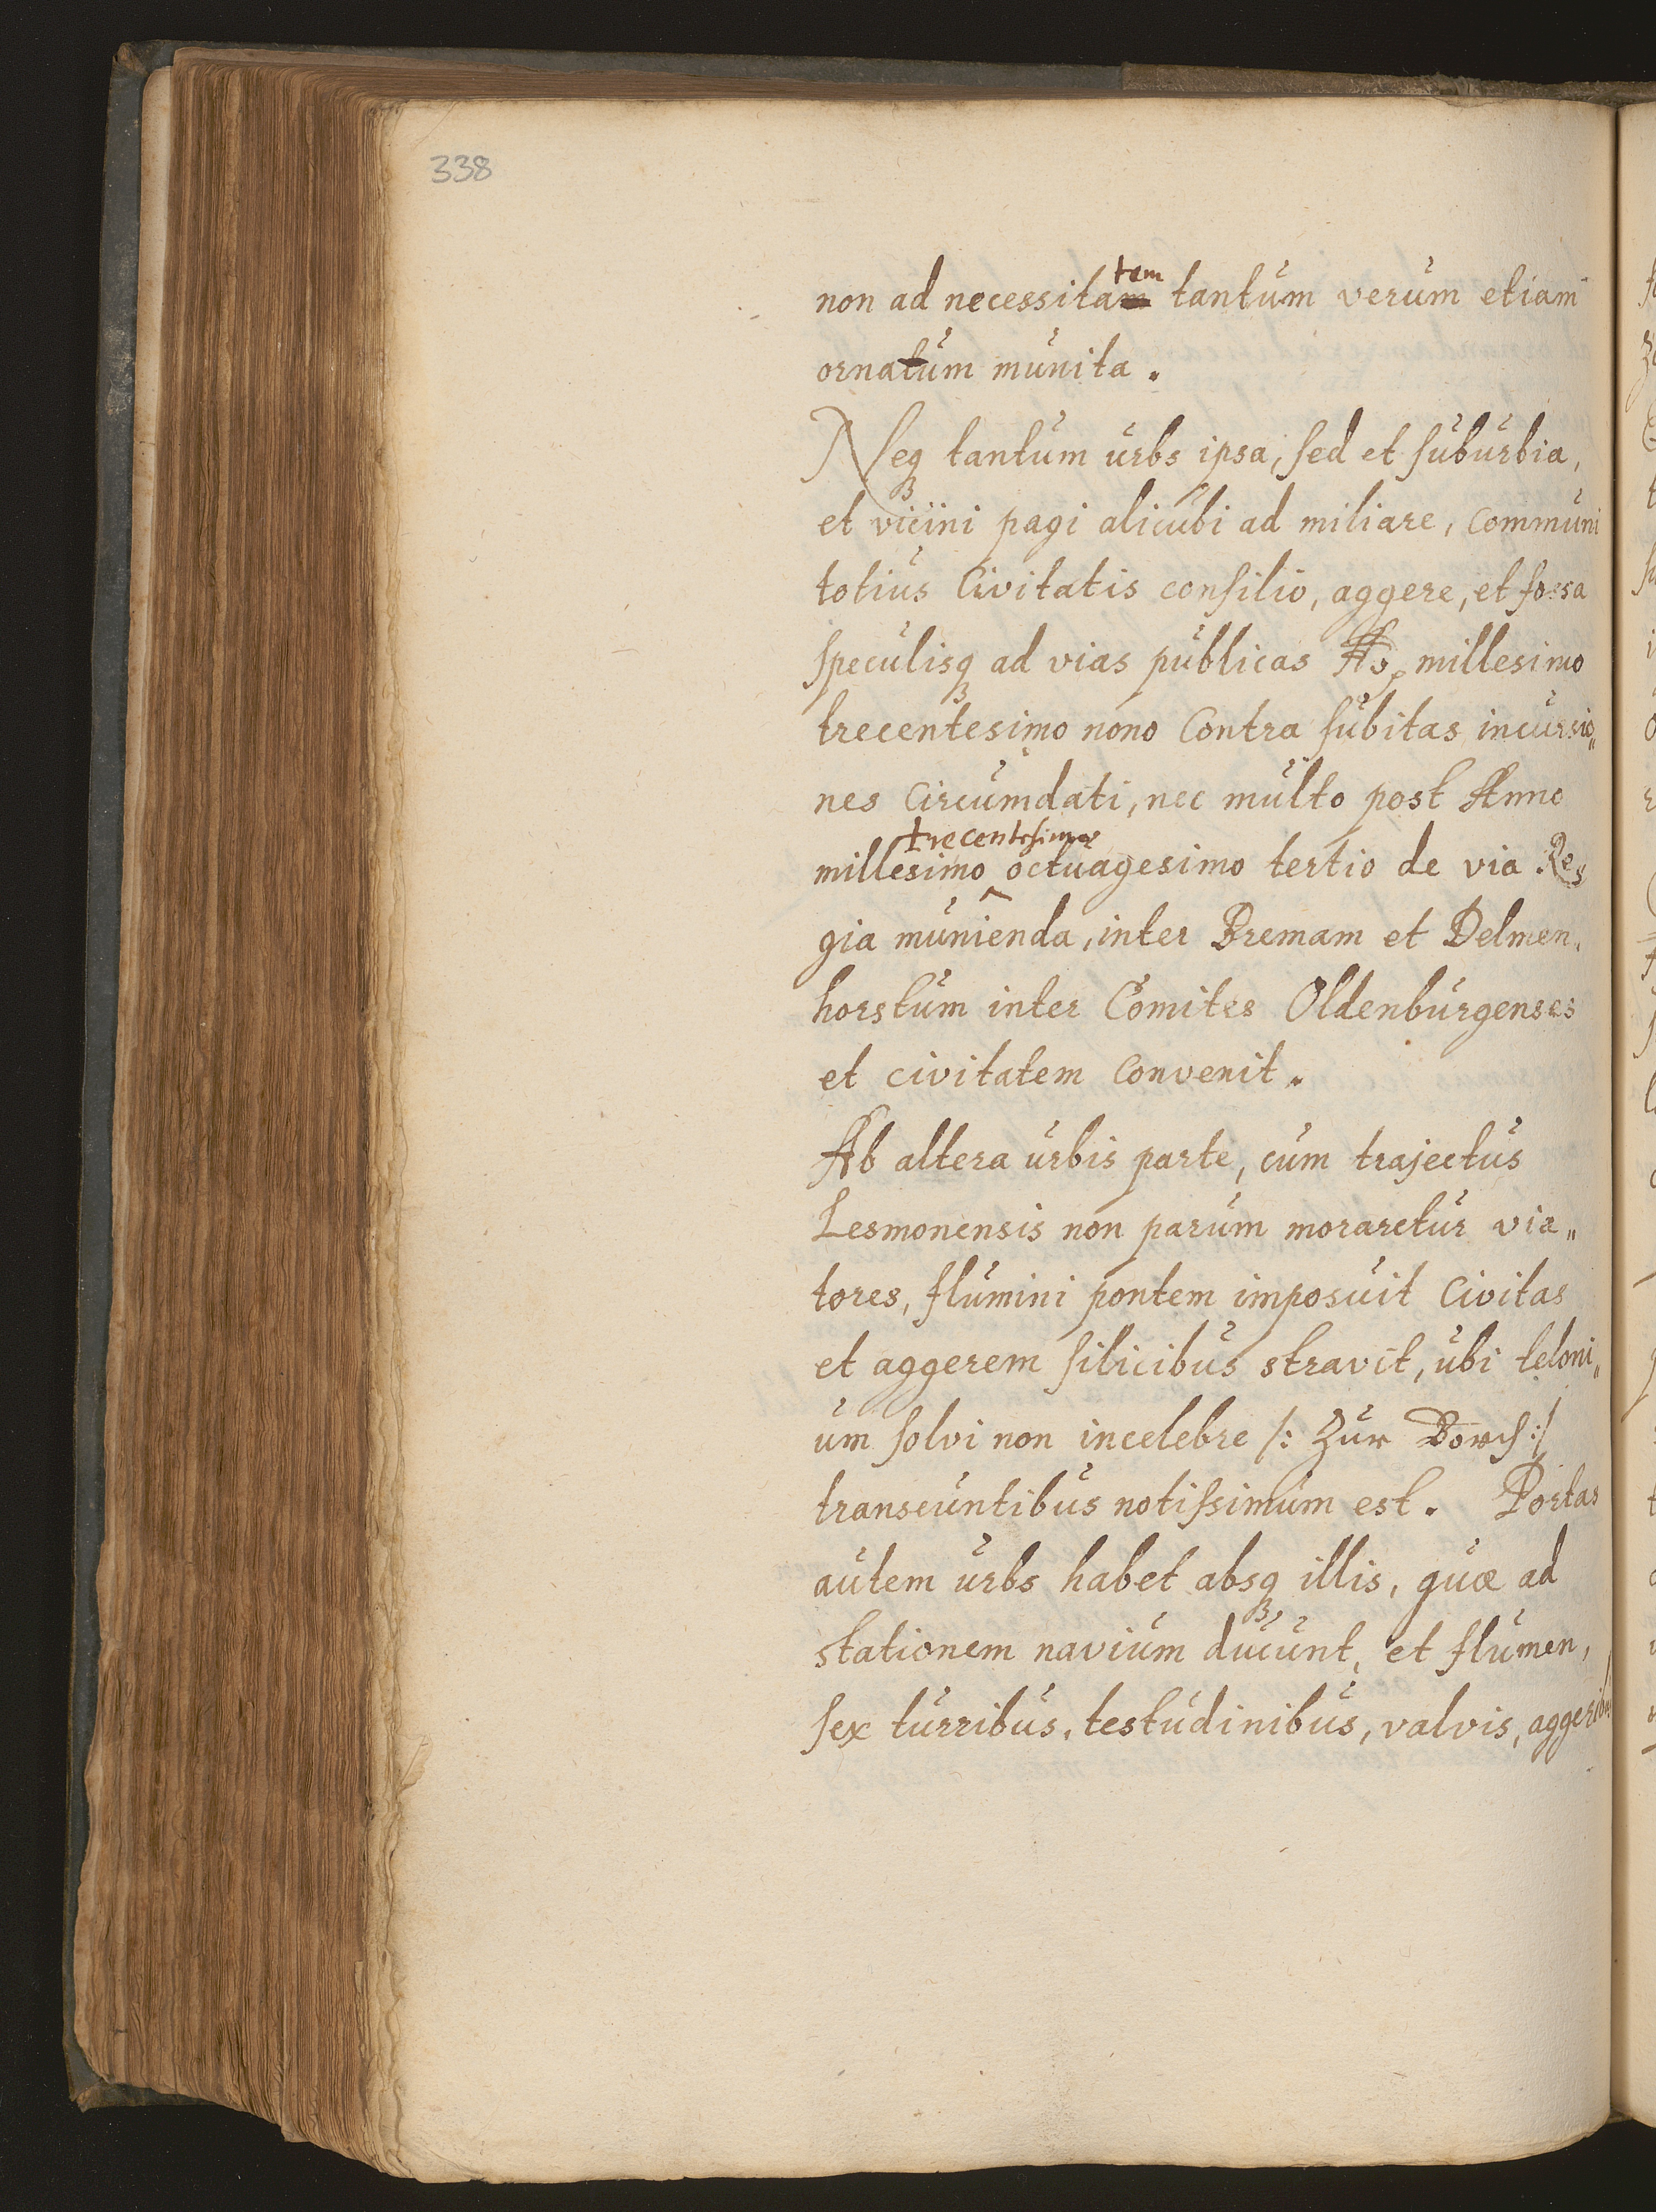 338
non ad necessitatem tantum verum etiam
ornatum munita.
Neqȝ tantum urbs ipsa, sed et suburbia,
et viciini pagi alicubi ad miliare, communi
totius Civitatis consilio, aggere, et fossa
speculisqȝ ad vias publicas Ao. millesimo
trecentesimo nono Contra subitas incursio„
nes Circumdati, nec multo post Anno
trecentesimo
millesimo octuagesimo tertio de via Re„
gia munienda, inter Bremam et Delmen„
horstum inter Comites Oldenburgenses
et civitatem Convenit.
Ab altera urbis parte, cum trajectus
Lesmonensis non parum moraretur via„
tores, flumini pontem imposuit Civitas
et aggerem silicibus stravit, ubi teloni„
um solvi non incelebre /: Zur Borch :/
transeuntibus notissimum est. Portas
autem urbs habet absqȝ illis, quæ ad
stationem navium ducunt, et flumen,
sex turribus, testudinibus, valvis, aggeribus